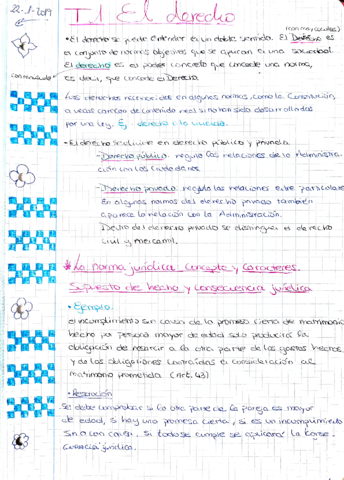 22-1-2019
T.1 El derecho
(con mayúscula)
• El derecho se puede entender en un doble sentido. El Derecho es
el conjunto de normas objetivas que se aplican en una sociedad.
El derecho es el poder concreto que concede una norma,
con minúscula
es decir, que concede el Derecho.
Los derechos reconocidos en algunas normas, como la Constitución,
a veces carecen de contenido real si no han sido desarrollados
por una ley. Ej, derecho a la vivienda.
• El derecho se divide en derecho público y privado
- Derecho público: regula las relaciones de la Administra-
ción con los ciudadanos.
- Derecho privado: regula las relaciones entre particulares
En algunas normas del derecho privado también
aparece la relación con la Administración.
Dentro del derecho privado se distingue el derecho
civil y mercantil.
* La norma jurídica. Concepto y caracteres.
Supuesto de hecho y consecuencia jurídica
• Ejemplo:
El incumplimiento sin causa de la promesa cierta de matrimonio
hecho por persona mayor de edad sólo producirá la
obligación de resarcir a la otra parte de los gastos hechos
y de las obligaciones contraídas en consideración al
matrimonio prometido. (Art. 43)
• Resolución
Se debe comprobar si la otra parte de la pareja es mayor
de edad, si hay una promesa cierta, si es un incumplimiento
sin o con causa. Si todo se cumple se aplicará la conse-
cuencia jurídica.